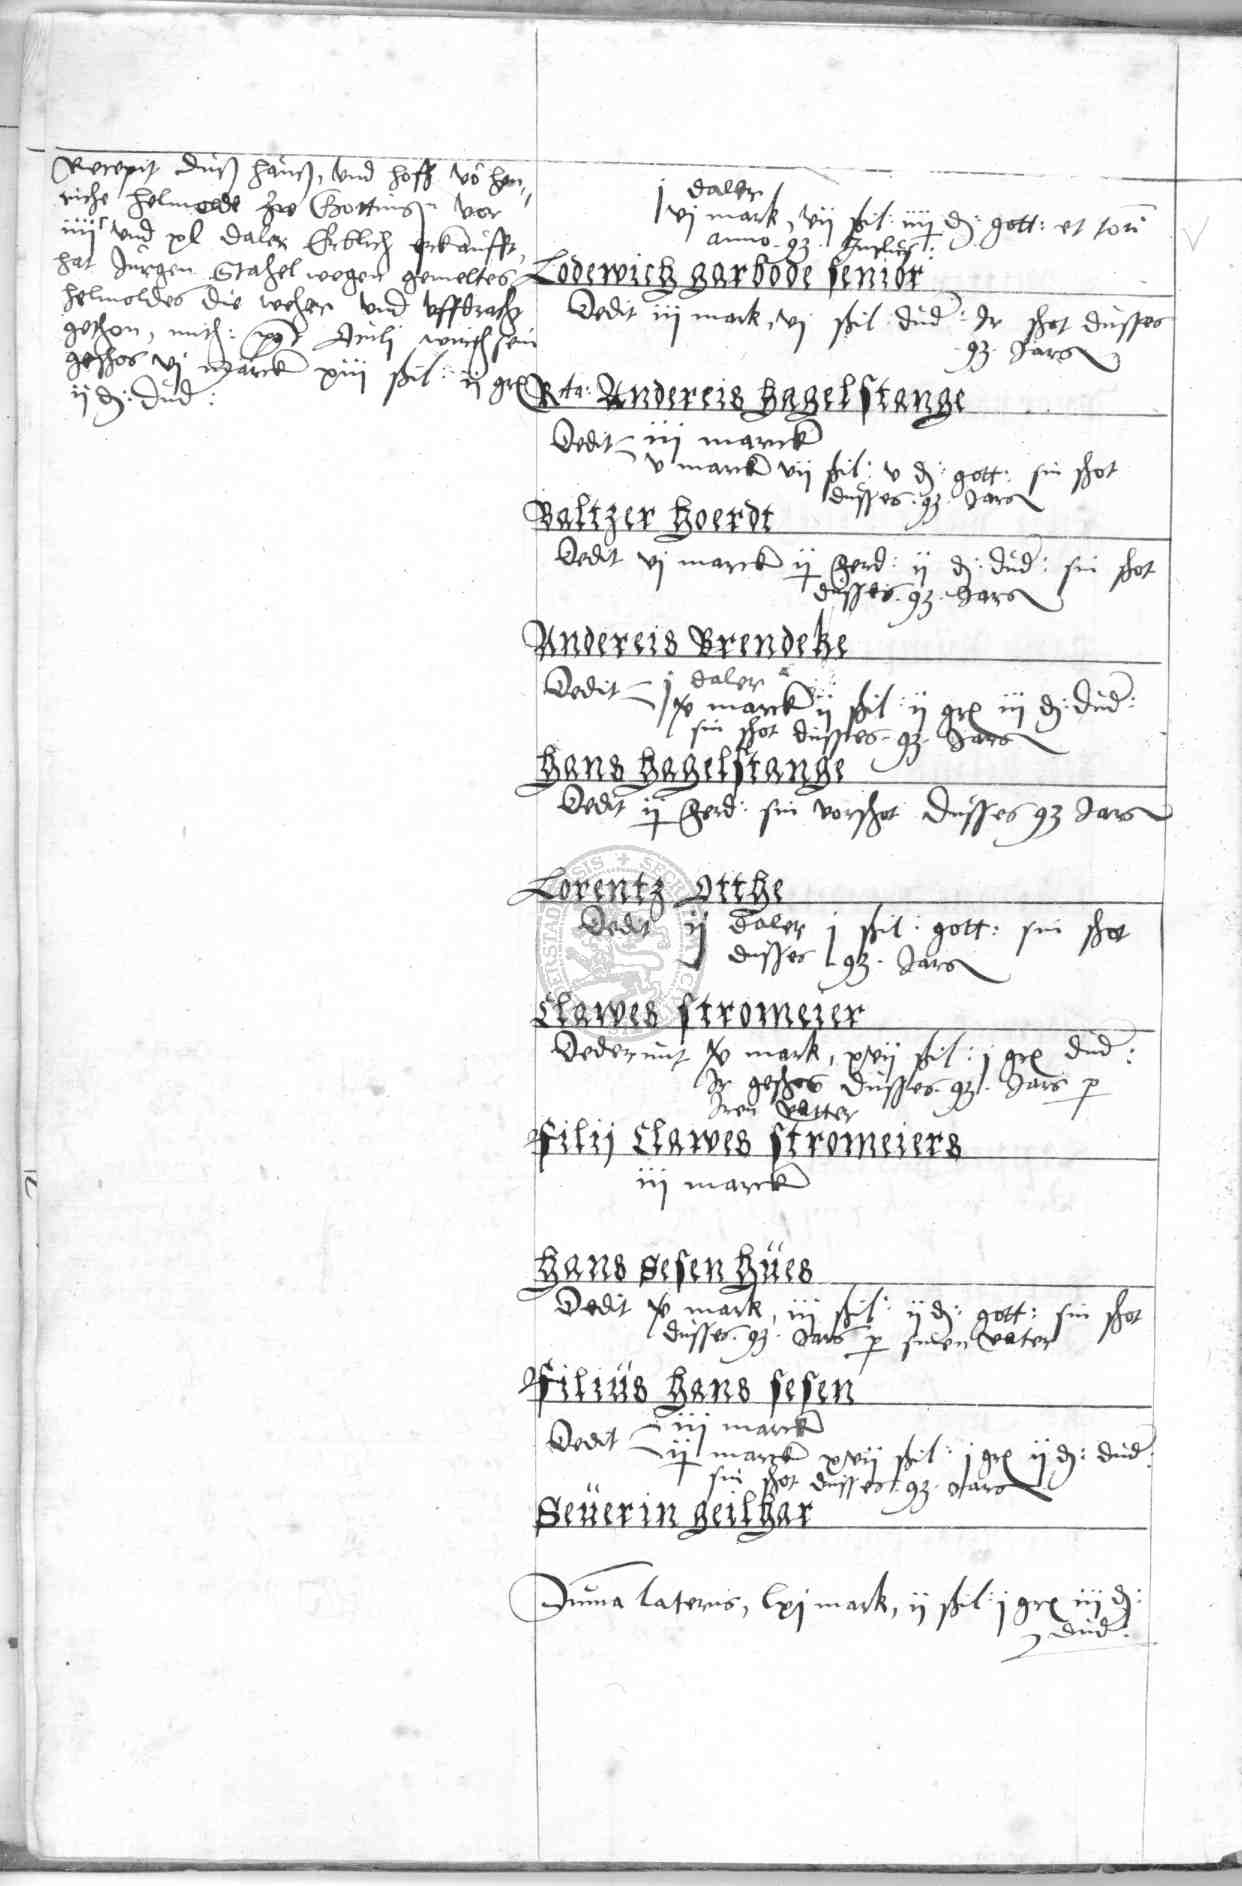 Recepit duß hauß, und hoff vo hen-
riche helmolde zre Gottingn vor
iiii und xl daler Erblich erkaufft,
hat Jurgen Stahel wegen gemeltes
helmoldes die weher und uffdracht
gethon, mith: Aprili wirth sein
geschos vj marck xiii ßil: ij grs
ij d: dud:
j daler
vj mark, vii ßil: iiij d: gott: et totu
anno. 93.
Lodewich garbode senior
Dedit iij mark, vj ßil: dud: Ir shot dusses
93. Jars
Rta: Andereis hagelstange
Dedit iij marck
v marck vij ßil: v d: gott: sin shot
dusses. 93. Jars
Baltzer hoerdt
Dedit vj marck ij ferd: ij d: dud: sin shot
dusses. 93. Jars
Andereis Brendeke
Dedit j daler
xv marck ij ßil: ij grs iij d: dud:
sin shot dusses. 93. Jars
Hans hagelstange
Dedit ij ferd: sin vorshot dusses 93 Jars
Lorentz Otthe
Dedit ij daler j ßil: gott: sin shot
dusses 93. Jars
Clawes stromeier
Dederunt xv mark, xvij ßil: j grs dud:
Ir geshos dusses. 93. Jars p
Iren vatter
Filij Clawes stromeiers
iij marck
Hans Sesen hües
Dedit xv mark, iiij ßil: ij d: gott: sin shot
dusses. 93. Jars p sinen vater
Filiüs hans sesen
Dedit iij marck
ij marck xvij ßil: j grs ij d: dud:
sin shot dusses. 93. Jars
Seüerin geilhar
Suma lateris, lxj mark, ij ßil: j grs iij d:
dud: